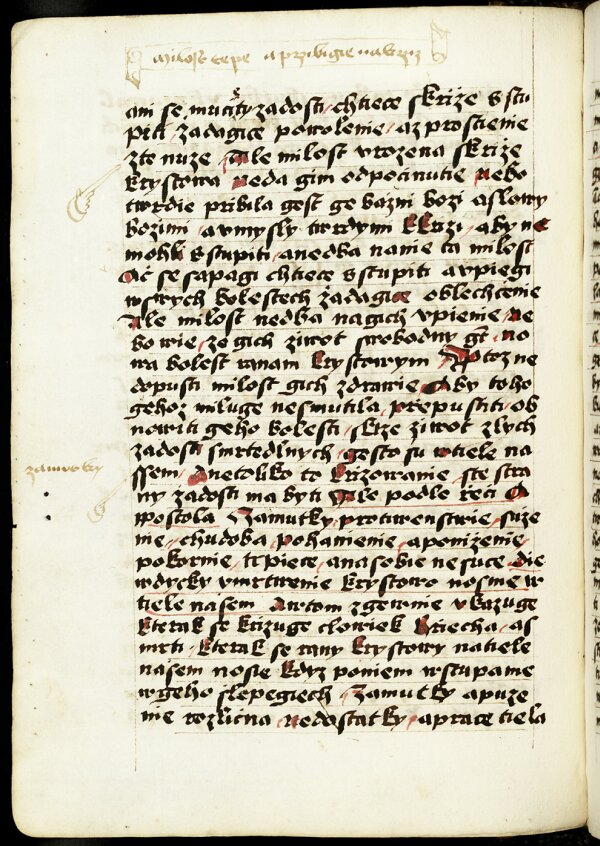 milost tepe a przibigie na krziz
ani se mucity zadosti chtiece skrize s stu
piti zadagice powolenie az prostienie
zte nuze Ale milost vrozena skrize
krystowa neda gim odpocinutie nebo
twrdie pribila gest ge bazni bozi a slowy
bozimi a vmysly twrdymi kkrizi aby ne
mohli s stupiti a nedba na nie ta milost
Ac se sapagi chtiece s stupiti a vpiegi
wswych bolestech zadagice oblehcenie
Ale milost nedba nagich vpienie ne
bo wie ze gich ziwot swobodny gt no
wa bolest ranam krystowym Protoz ne
dopusti milost gich zdrawie Aby toho
gehoz miluge nesmutila prepustiti ob
nowiti geho bolesti skrze ziwot zlych
zadosti smrtedlnych gesto su wtiele na
ssem A netoliko to krizowanie ste stra
ny zadosti ma byti Ale podle reci A
postola Zamutky protiwenstwie suze
nie chudoba pohanienie a ponizenie
pokornie trpiece a na sobie nesuce die
wdycky vmrtwenie krystowo nosme w
tiele nasem A wtom zgewnie vkazuge
kterak se krizuge clowiek hriecha as
mrti kterak se rany krystowy na tiele
nasem nosie kdyz po niem wstupame
wgeho slepegiech Zamutky a puze
nie rozlicna nedostatky a prace tiela
zamutky